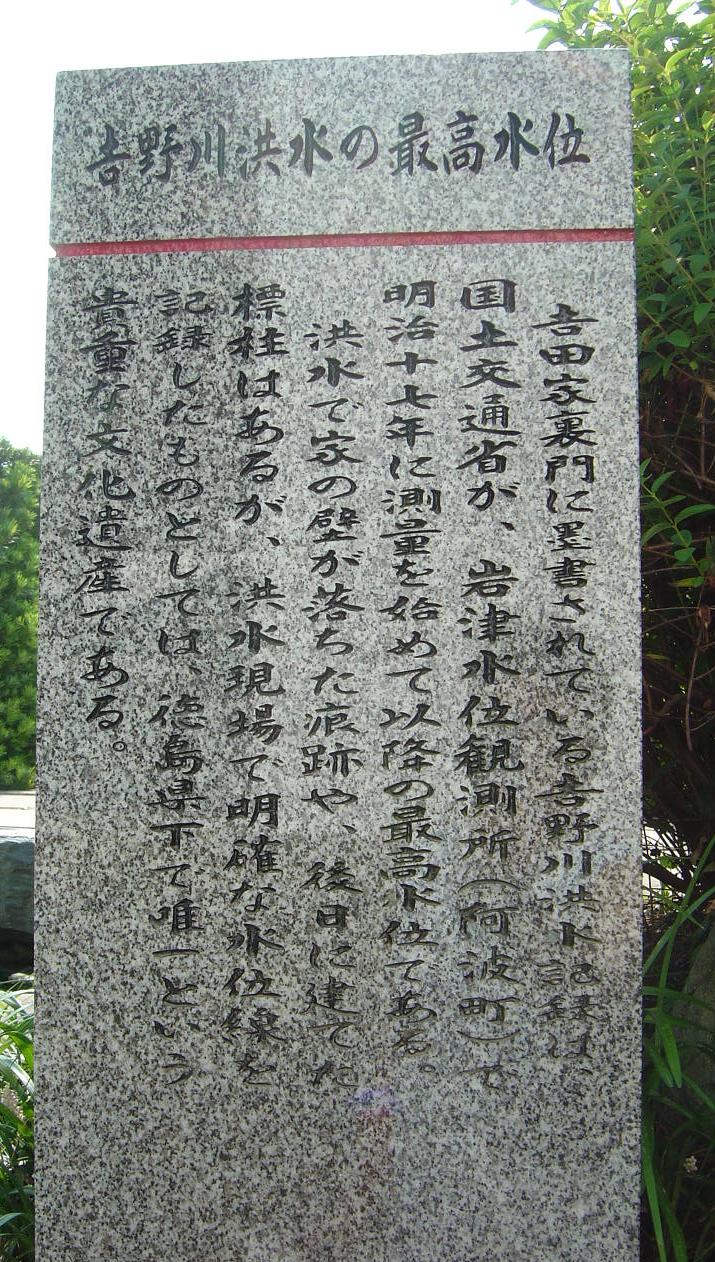 𠮷野川洪水の最高水位
𠮷田家裏門に墨書されている𠮷野川洪水記録は、
国土交通省が、岩津水位観測所(阿波町)で
明治十七年に測量を始めて以降の最高水位である。
洪水で家の壁が落ちた痕跡や、後日に建てた
標柱はあるが、洪水現場で明確な水位線を
記録したものとしては、徳島県下で唯一という
貴重な文化遺産である。